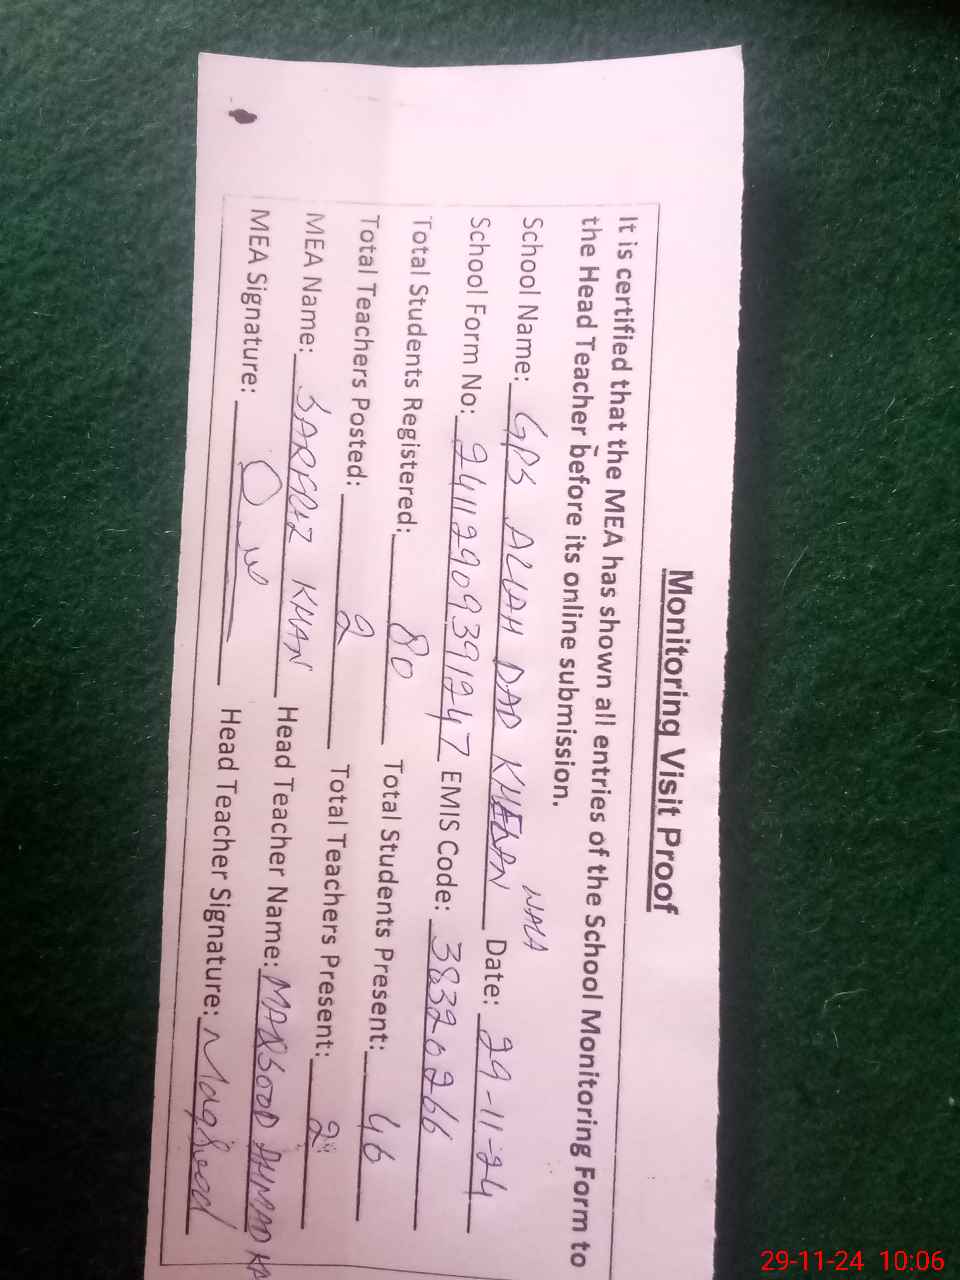 Monitoring Visit Proof
It is certified that the MEA has shown all entries of the School Monitoring Form to
the Head Teacher before its online submission.
WALA
School Name: GPS ALLAH DAD Date: 29-11-24
School Form No: 24112909391247 EMIS Code: 38320266
Total Students Registered: 80 Total Students Present: 46
Total Teachers Posted: 2 Total Teachers Present: 2
MEA Name: KHAN Head Teacher Name: MAQSOOD AHMAD
MEA Signature: Head Teacher Signature: Maqsood
29-11-24 10:06